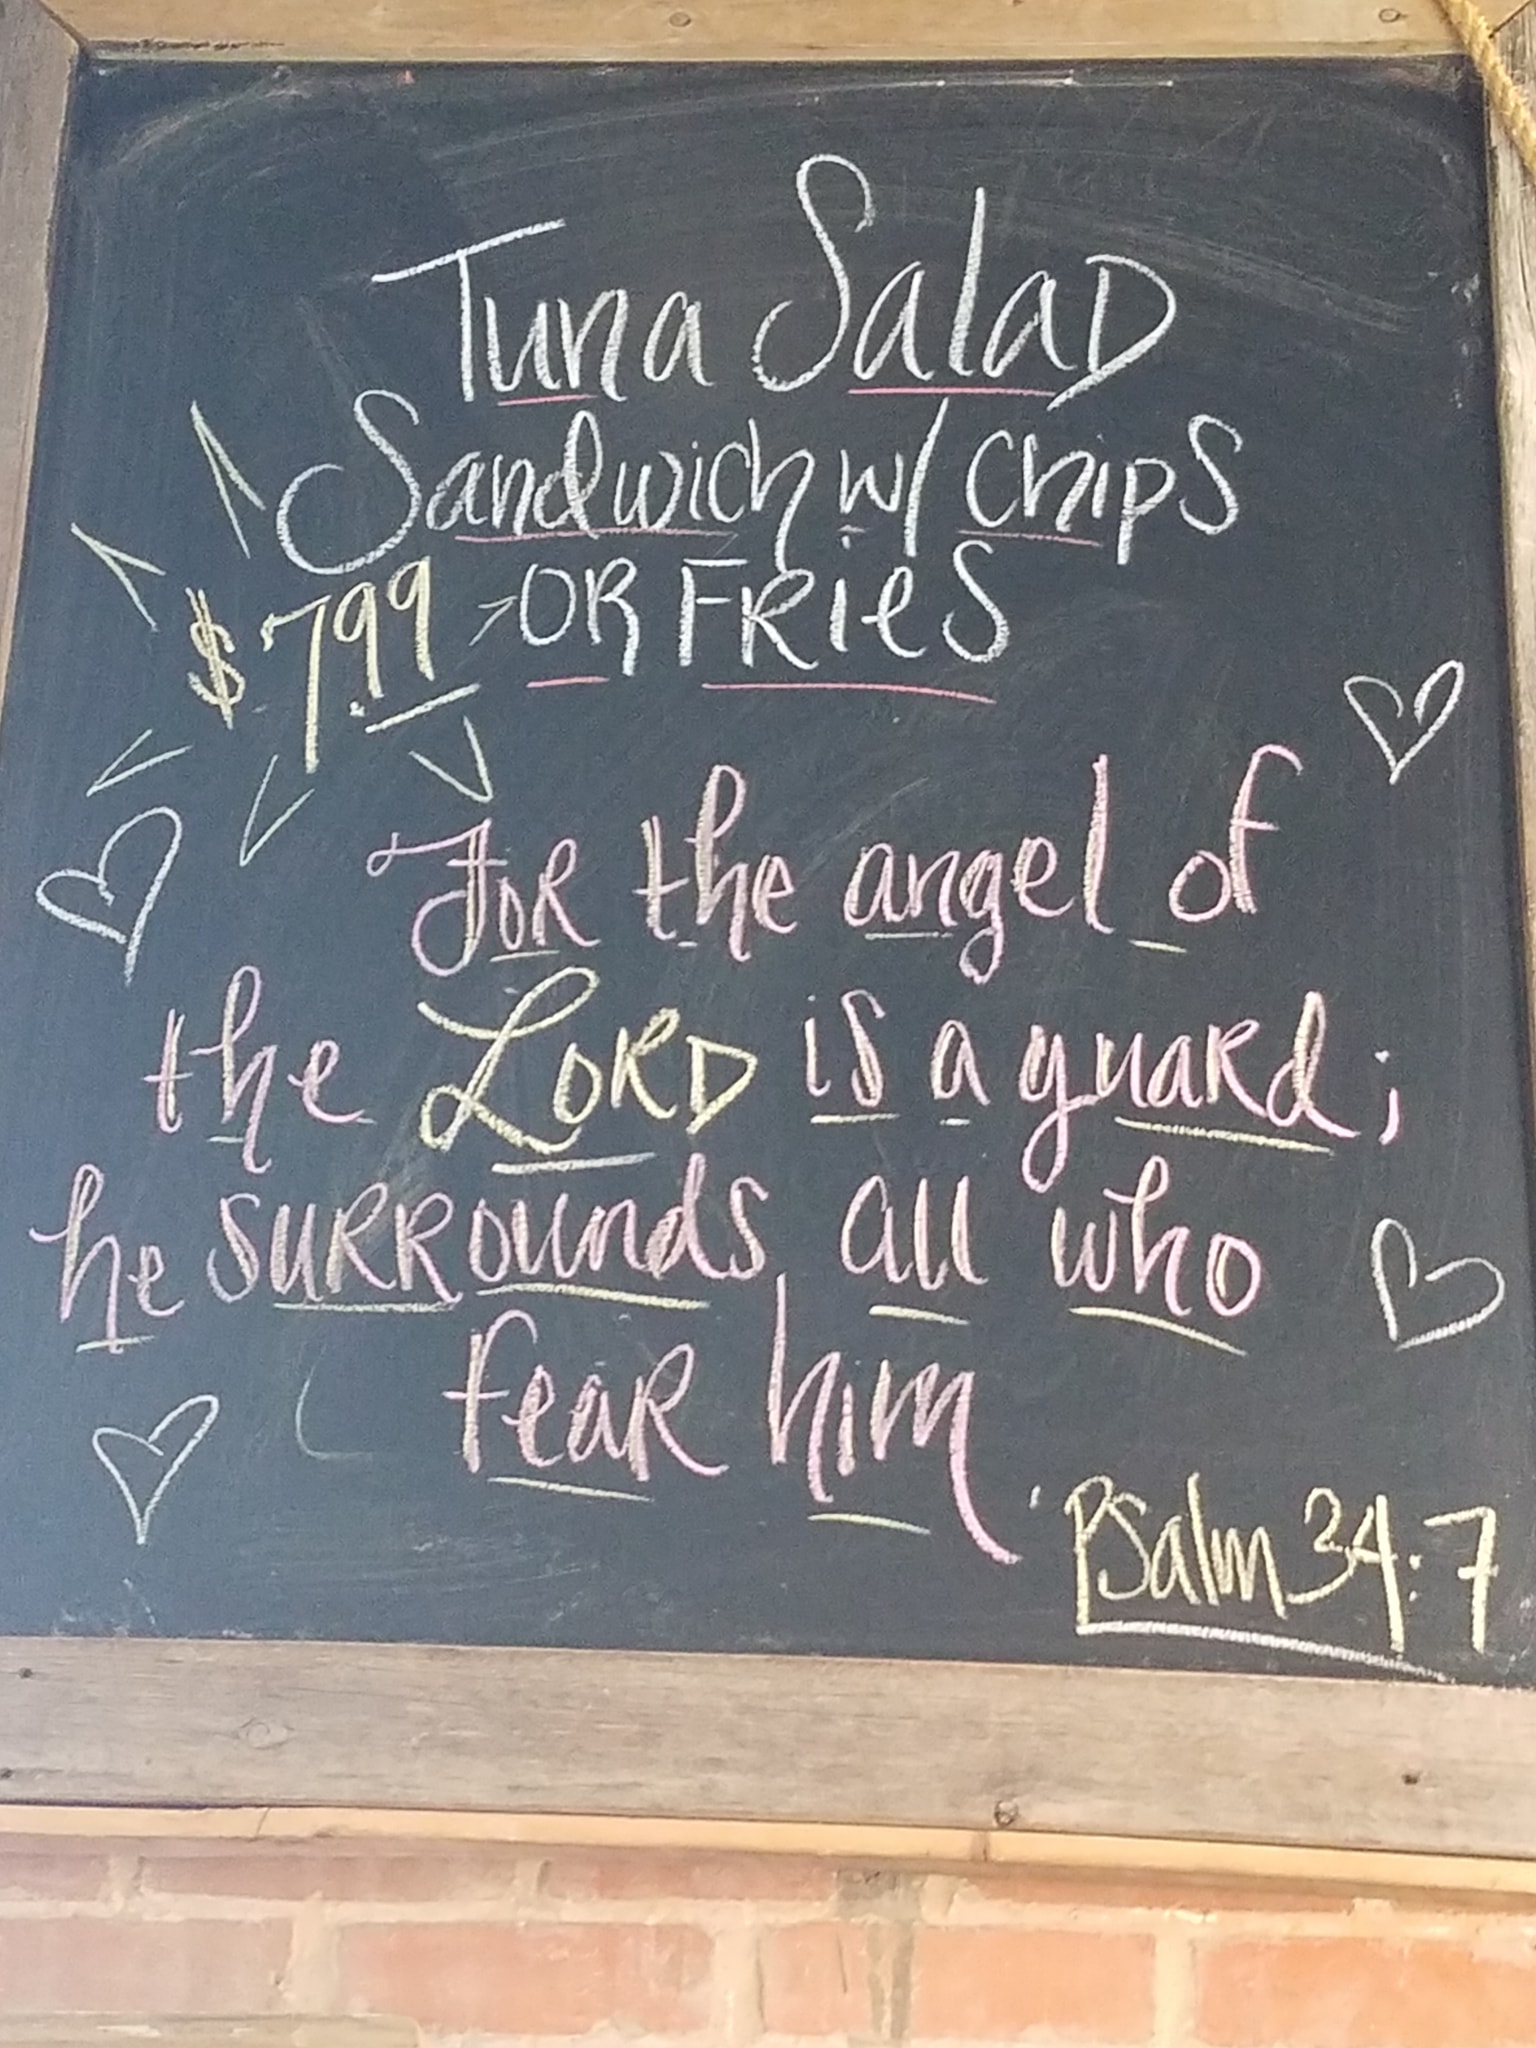 Tuna SalaD
Sandwich w/ chips
$7.99 OR FRieS
FoR the angel of
the LORD is a guaRd;
he suRRounds all who
feaR him
Psalm 34:7